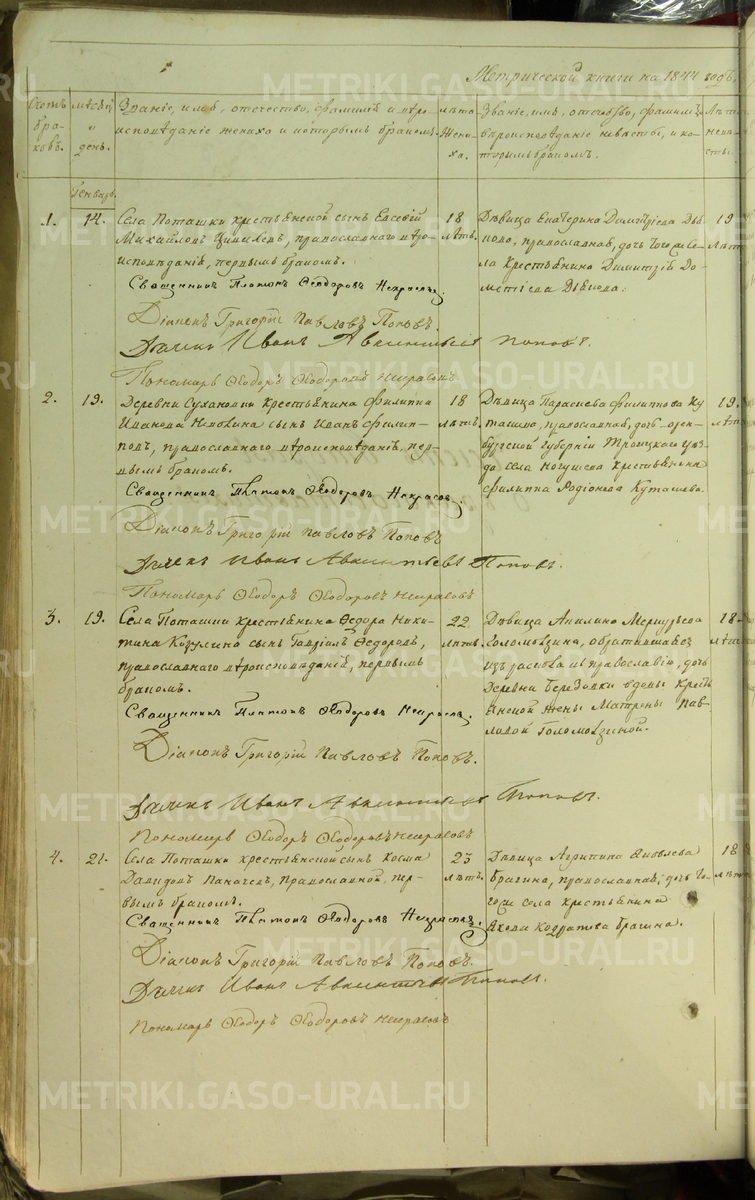 Метрической книги на 1844 годъ
Счетъ браковъ.
мѣсяцъ и день.
Званіе, имя, отечество, фамилія и вѣро-
исповѣданіе жениха и которымъ бракомъ.
лѣта Жениха.
Званіе, имя, отечество, фамилія,
вѣроисповѣданіе невѣсты, и ко-
торымъ бракомъ.
Лѣта невѣсты.
Генварь.
1.
14.
Села Поташки крестьянской сынъ Евсевій
Михайловъ, православнаго вѣро-
исповѣданія, первымъ бракомъ.
Священникъ Платонъ Ѳеодоровъ Некрасовъ.
Діаконъ Григорій Павловъ Поповъ.
Дьячекъ Иванъ Авксентьевъ Поповъ.
Пономарь Ѳеодоръ Ѳеодоровъ Некрасовъ
18
лѣтъ.
Дѣвица Екатерина Димитріева,
православная, дочь тогоже се-
ла крестьянина Димитрія До-
метіева
19
лѣтъ
2.
19.
Деревни Сухановки крестьянина Филиппа
Иванова сынъ Иванъ Филип-
повъ, православнаго вѣроисповѣданія, пер-
вымъ бракомъ.
Священникъ Платонъ Ѳеодоровъ Некрасовъ.
Діаконъ Григорій Павловъ Поповъ
Дьячекъ Иванъ Авксентьевъ Поповъ.
Пономарь Ѳеодоръ Ѳеодоровъ Некрасовъ
18
лѣтъ.
Дѣвица Параскева Филиппова Ку-
ташева, православная, дочь орен-
бургской губерніи Троицкаго уѣз-
да села Ногушева крестьянина
Филиппа Родіонова Куташева.
19.
лѣтъ
3.
19.
Села Поташки крестьянина Ѳедора Ники-
тина Козулина сынъ Гавріилъ Ѳедоровъ,
православнаго вѣроисповѣданія, первымъ
бракомъ.
Священникъ Платонъ Ѳеодоровъ Некрасовъ.
Діаконъ Григорій Павловъ Поповъ.
Дьячекъ Иванъ Авксентьевъ Поповъ.
Пономарь Ѳеодоръ Ѳеодоровъ Некрасовъ
22
лѣтъ.
Дѣвица Акилина Меркурьева
Голомовзина, обратившаяся
изъ раскола къ православію, дочь
деревни Березовки вдовы кресть-
янской жены Матрены Пав-
ловой Голомовзиной.
18
лѣтъ
4.
21.
Села Поташки крестьянской сынъ Козма
Давидовъ, Православной, пер-
вымъ бракомъ.
Священникъ Платонъ Ѳеодоровъ Некрасовъ.
Діаконъ Григорій Павловъ Поповъ.
Дьячекъ Иванъ Авксентьевъ Поповъ.
Пономарь Ѳеодоръ Ѳеодоровъ Некрасовъ
23
лѣтъ.
Дѣвица Агрипина Яковлева
Брагина, православная, дочь то-
гоже села крестьянина
Якова Кодратова Брагина.
18
лѣтъ
METRIKI.GASO-URAL.RU